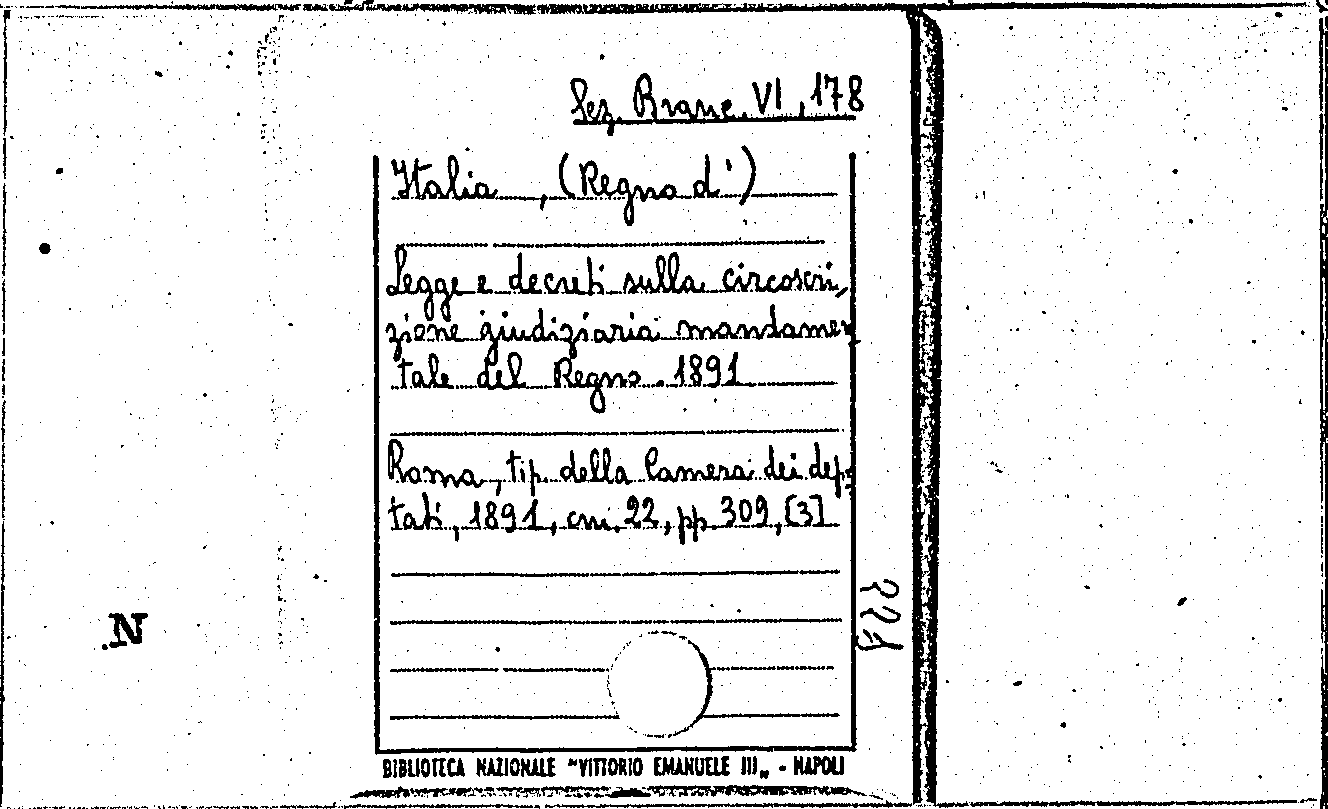 Sez. Branc. VI, 178
Italia, (Regno d')
Legge e decreti sulla circoscri,
zione giudiziaria mandamen
tale del Regno. 1891
Roma, tip. della Camera dei depu
tati, 1891, cm. 22, pp. 309, [3]
221
N
BIBLIOTECA NAZIONALE "VITTORIO EMANUELE III„ - NAPOLI